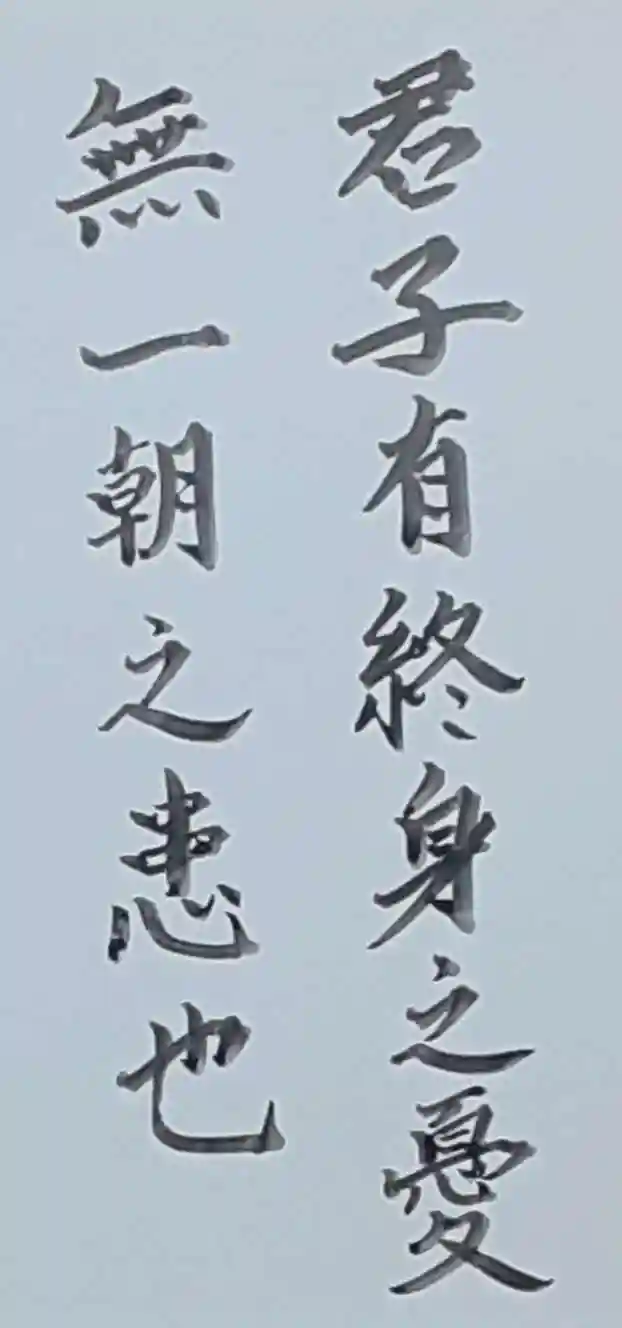 君子有終身之憂
無一朝之患也